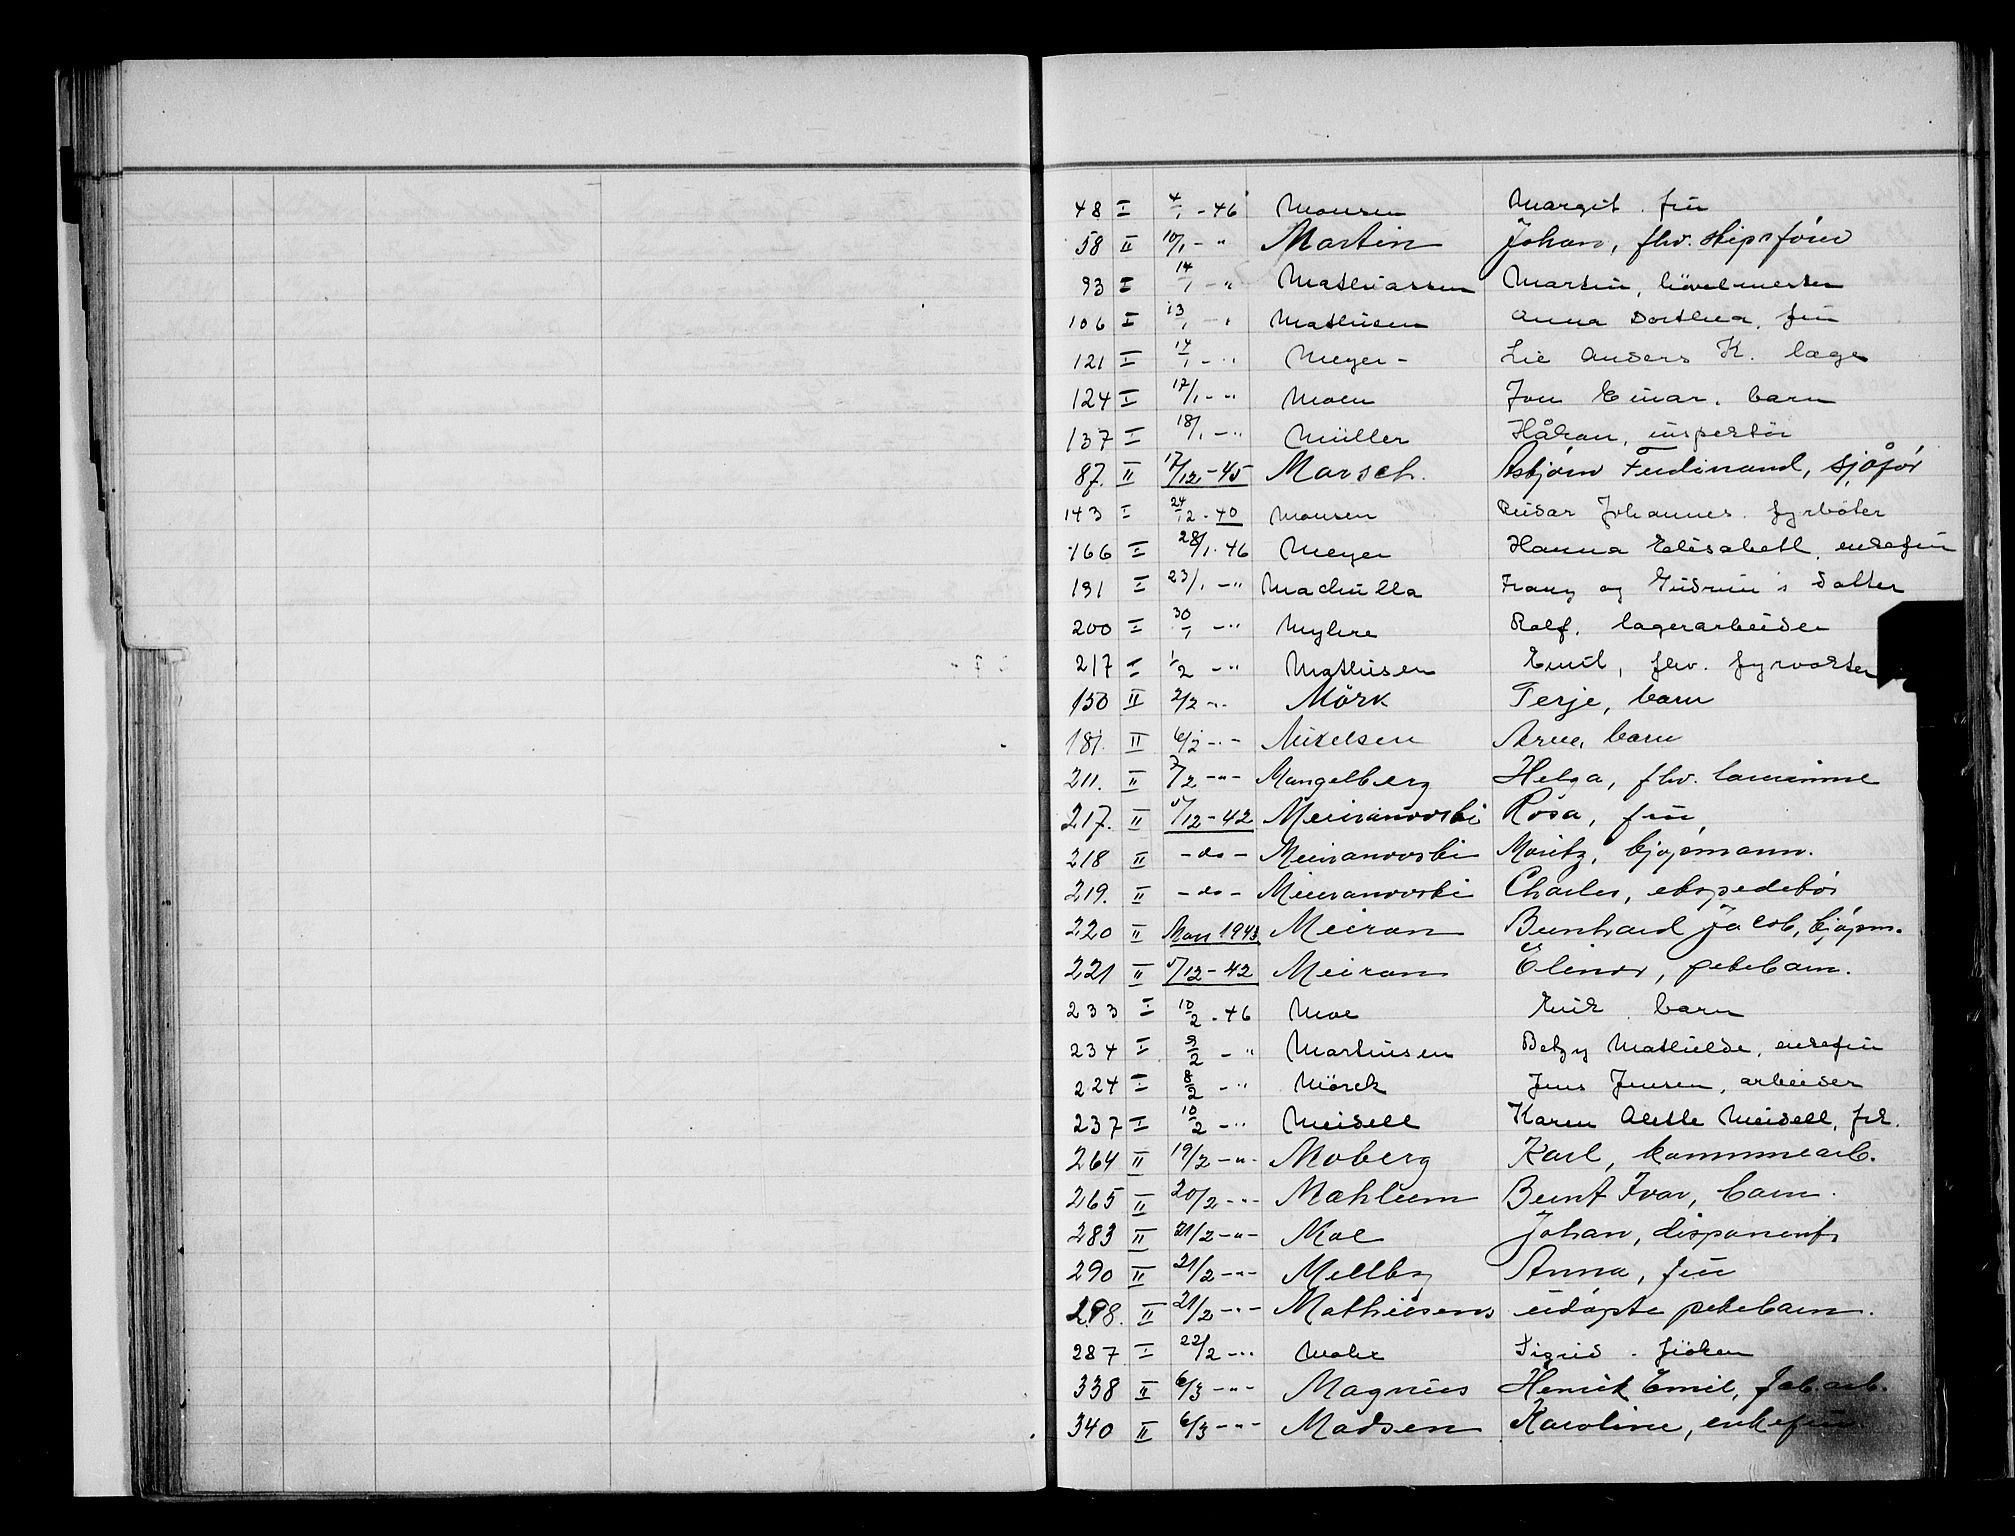 48 I 4/1 - 46 Monsen Margit. fru
58 II 10/1 - " Martin Johan, fhv. skipsfører
93 I 14/1 - " Mathiassen Martin, hövelmester
106 I 13/1 - " Mathisen Anna Dorthea. fru
121 I 14/1 - " Meyer - Lie Anders K. læge
124 I 17/1 - " Moen Jon Einar. barn
137 I 18/1 - " Müller Håkon, inspektör
87. II 17/12 - 45 Marsch. Asbjørn Ferdinand, sjåfør
143 I 24/12 - 40 Monsen Reidar Johannes. fyrböter
166 I 28/1. 46 Meyer Hanna Elisabeth. enkefru
191 I 23/1 - " Machulla Franz og Gudrun's datter
200 I 30/1 - " Myhre Rolf. lagerarbeider
217 I 1/2 - " Mathisen Emil, fhv. fyrvokter
150 II 2/2 " Mörk Terje, barn
181. II 6/2 - " - Mikelsen Arne, barn
211. II 7/2 - " - Mangelberg Helga, fhv. lærerinne
217. II 5/12 - 42 Meiranovski Rosa, fru
218 II - do - Meiranovski Moritz, kjøpmann.
219. II - do - Meiranovski Charles, ekspeditør
220 II Mars 1943 Meiran Bernhard Jacob, kjøpm.
221 II 5/12 - 42 Meiran Elinor, pikebarn.
233 I 10/2 - 46 Moe Erik. barn
234 I 9/2 - " Martinsen Betzy Mathilde, enkefru
224 I 8/2 - " Mörck Jens Jensen, arbeider
237 I 10/2 - " Meidell Karen Alette Meidell, frk.
264 II 19/2 - " - Moberg Karl, kommunearb.
265 II 20/2 - " - Mæhlum Bernt Ivar, barn.
283 II 21/2 - " - Moe Johan, disponent
290 II 21/2 - " - Mellby Anna, fru
298. II 21/2 - " - Mathisens udøpte pikebarn.
287 I 22/2 - " Mohr Sigrid. fröken
338 II 6/3 - " - Magnus Henrik Emil, fab.arb.
340 II 6/3 - " - Madsen Karoline, enkefru